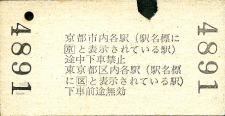 4891
京都市内各駅（駅名標に
㊋と表示されている駅）
途中下車禁止
東京都区内各駅（駅名標
に区と表示されている駅）
下車前途無効
4891